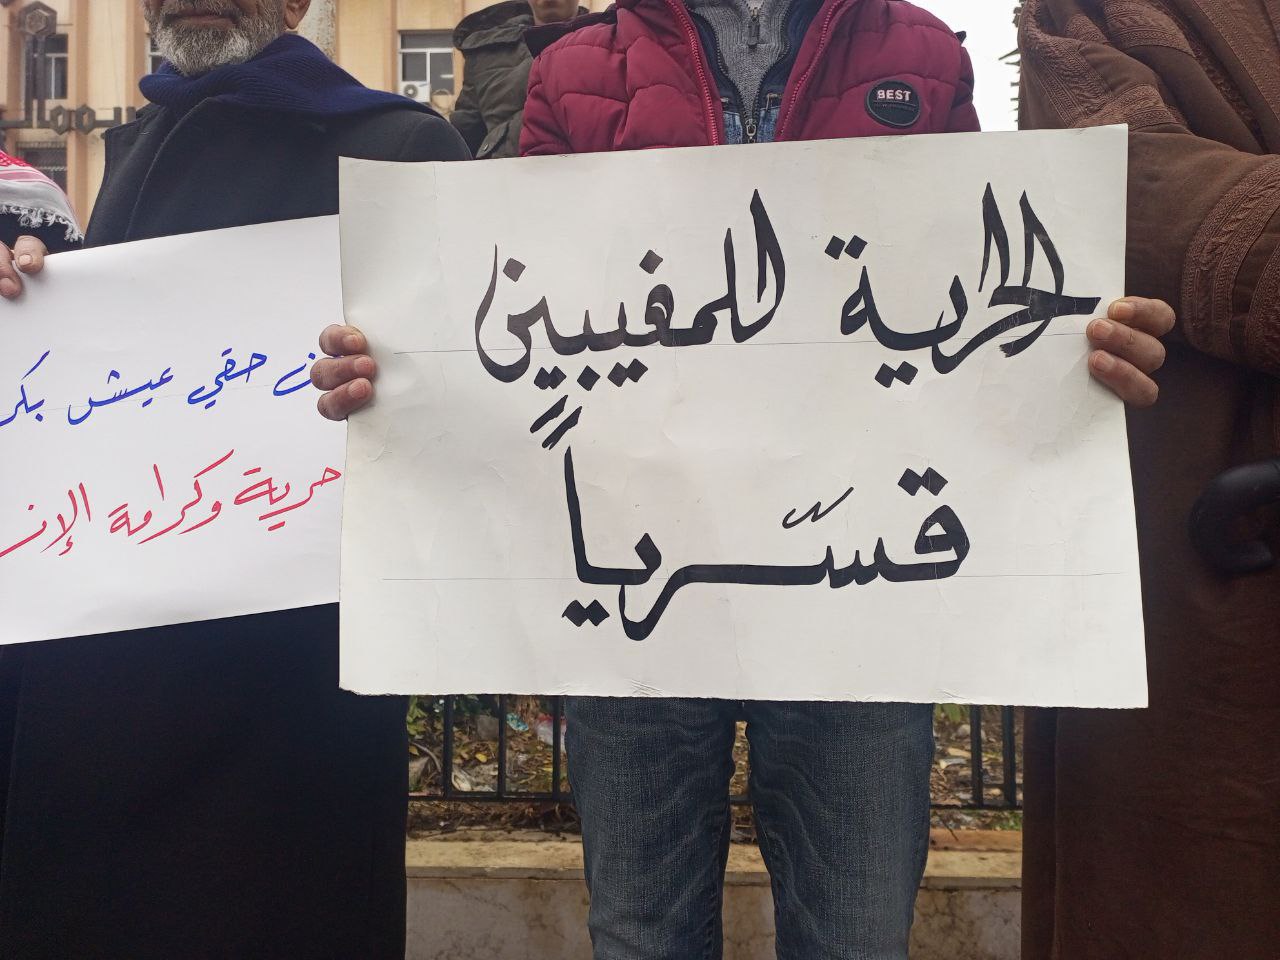 الحرية للمغيبين
قسرياً
حقي عيش بكر
حرية وكرامة الإنس
BEST